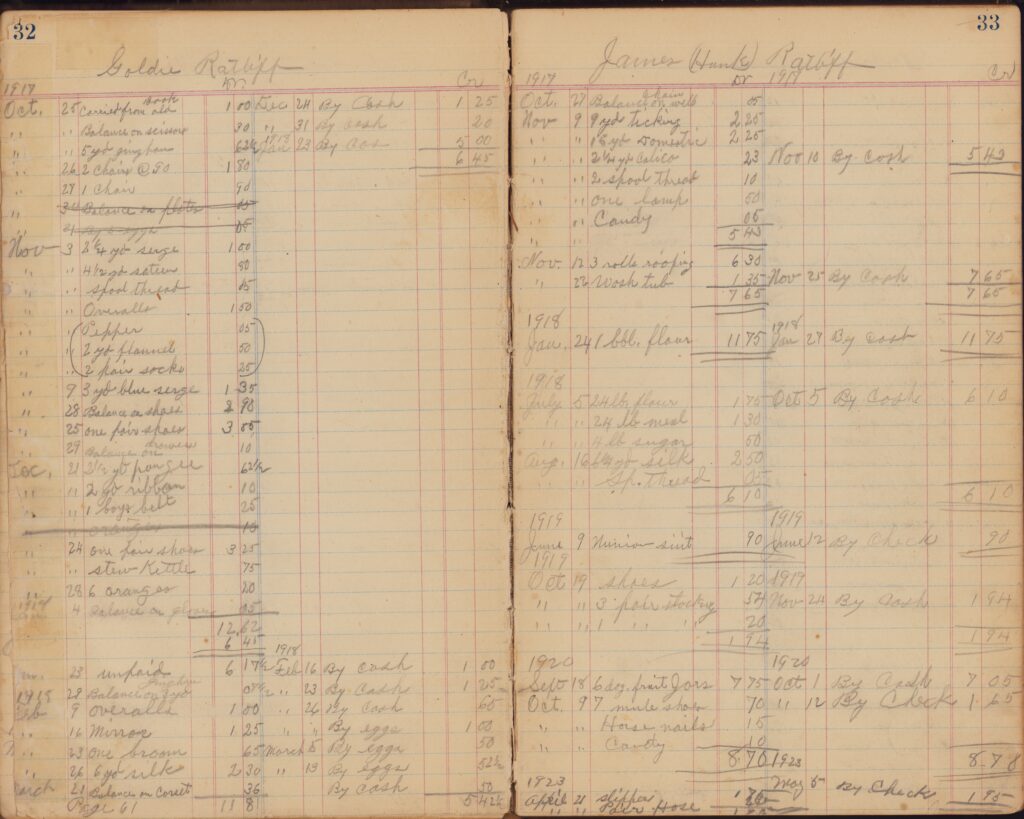 32
Goldie Ratliff
1917 Dr. Cr
Oct. 25 Carried from old book 1 00 Dec 24 By Cash 1 25
" " Balance on scissors 30 " 31 By cash 20
" " 5 yd gingham 62½ 1918 Jan 23 By Cas 5 00
" 26 2 Chairs @ 90 1 80 6 45
" 27 1 Chair 90
" 30 Balance on plates 05
" 31 By 2 eggs 05
Nov 3 2¼ yd serge 1 00
" " 4 1/2 yd sateen 50
" " Spool thread 05
" " Overalls 1 50
" " Pepper 05
" " 2 yd flannel 50
" " 2 pair socks 25
" 9 3 yd blue serge 1 35
" 28 Balance on shoes 2 98
" 25 one pair shoes 3 05
" 29 Balance on drawers 10
Dec. 21 2½ yd pongee 62½
" " 2 yd ribbon 10
" " 1 boys belt 25
oranges 10
" 24 one pair shoes 3 25
" " stew Kettle 75
" 28 6 oranges 20
1918 4 Balance on gloves 05
12 62
6 45
23 unpaid 6 17½ 1918 Feb 16 By cash 1 00
28 Balance on 3 yd gingham 07½ " 23 By Cash 1 25
1918 Feb 9 overalls 1 00 " 26 By Cash 65
" 16 Mirror 1 25 " " By eggs 1 00
" 23 one broom 65 March 5 By eggs 50
" 26 6 yd silk 2 30 " 13 By eggs 52½
March 21 Balance on Corset 36 By cash 50
Page 61 11 8 5 42½
33
James (Hunk) Ratliff
1917 Dr 1917 Cr
Oct. 27 Balance on well chain 05
Nov 9 9 yd ticking 2 25
" " 15 yd Domestic 2 25
" " 2¼ yd Calico 23 Nov 10 By Cash 5 43
" " 2 spool thread 10
" " one lamp 50
" " Candy 05
5 43
Nov. 12 3 rolls roofing 6 30
" 22 Wash tub 1 35 Nov 25 By Cash 7 65
7 65 7 65
1918 1918
Jan. 24 1 bbl. flour 11 75 Jan 27 By Cash 11 75
1918
July 5 24 lb. flour 1 75 Oct 5 By Cash 6 10
" " 24 lb meal 1 30
" " 4 lb sugar 50
Aug. 16 6¼ yd silk 2 50
" " Sp. Thread 05
6 10 6 10
1919 1919
June 9 Union suit 90 June 12 By Check 90
1919
Oct 19 shoes 1 20 1919
" " 3 pair stocking 54 Nov 24 By Cash 1 94
" " 1 " " 20
1 94 1 94
1920 1920
Sept 18 6 doz. fruit Jars 7 75 Oct 1 By Cash 7 05
Oct. 9 7 mule shoes 70 " 12 By Check 1 65
" " Horse nails 15
" " Candy 10
8 70 1923 8 70
1923 May 5 By Check 1 95
April 21 slippers 1 75
" " Pair Hose